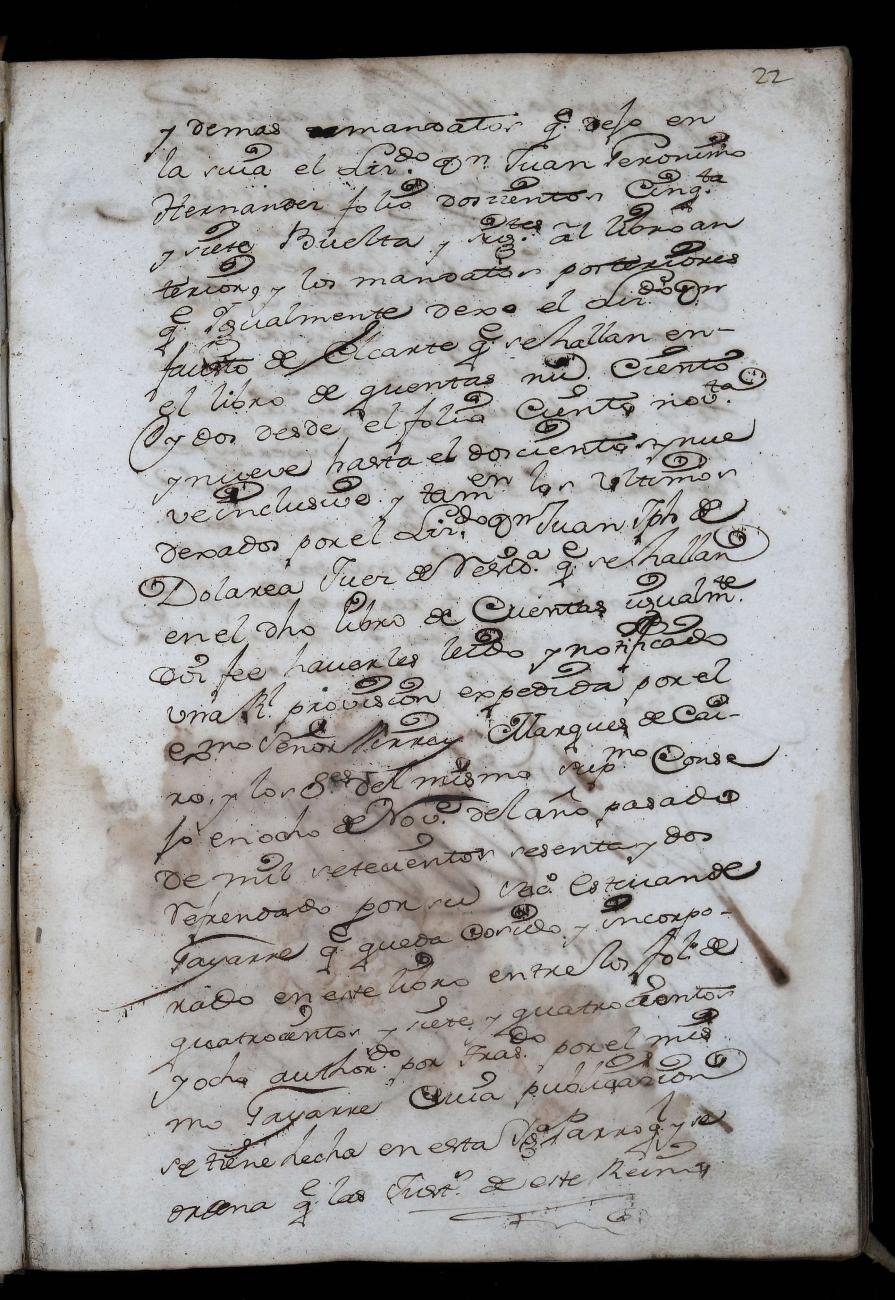 22
y demas mandatos q.e dejo en
la suia el Liz.do Dn Juan Geronimo
Hernandez folio doscientos Cinq.ta
y siete Buelta y sig.tes al libro an
terior, y los mandatos posteriores
q.e Igualmente dexo el Liz.do Dn
fausto de Elcarte q.e se hallan en-
el libro de quentas nu.o Ciento
y dos desde el folio Ciento nov.ta
y nueve hasta el doscientos y nue
ve inclusive y tam en los Ultimos
dexados por el Liz.do Dn Juan Jph de
Dolarea Juez de Resid.a q.e se hallan
en el dho libro de Cuentas igualm.te
Doi fee haverles leido y notificado
una Rl. provision expedida por el
exmo Señor Virrey Marques de Cai-
ro, y los S.es del mismo sup.mo Conse
jo en ocho de Nov.e del año pasado
De mil setecientos sesenta y dos
Refrendado por su Sec.o Estevan de
Gayarre q.e queda Cosido y incorpo-
rado en este libro entre los fol.s de
quatrocientos y siete, y quatrocientos
y ocho author.do por Tras.do por el mis
mo Gayarre Cuia publicazion
se tiene hecha en esta Parroq.l y se
ordena q.e las Just.s de este Reino